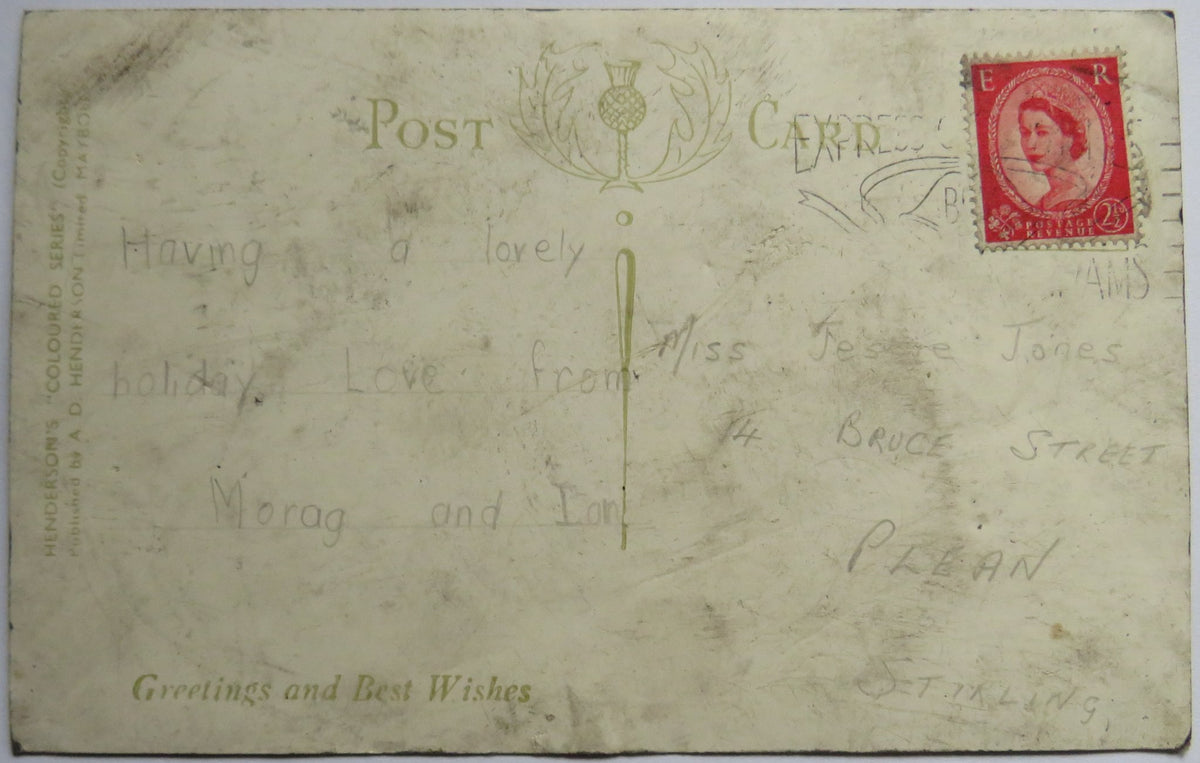 POST CARD
E R
POSTAGE
REVENUE
2½
EXPRESS
HENDERSON'S "COLOURED SERIES" (Copyright)
Published by A D HENDERSON Limited MAYBOLE
Having a lovely
holiday. Love from
Morag and Ian
Miss Jessie Jones
14 BRUCE STREET
PLEAN
Greetings and Best Wishes